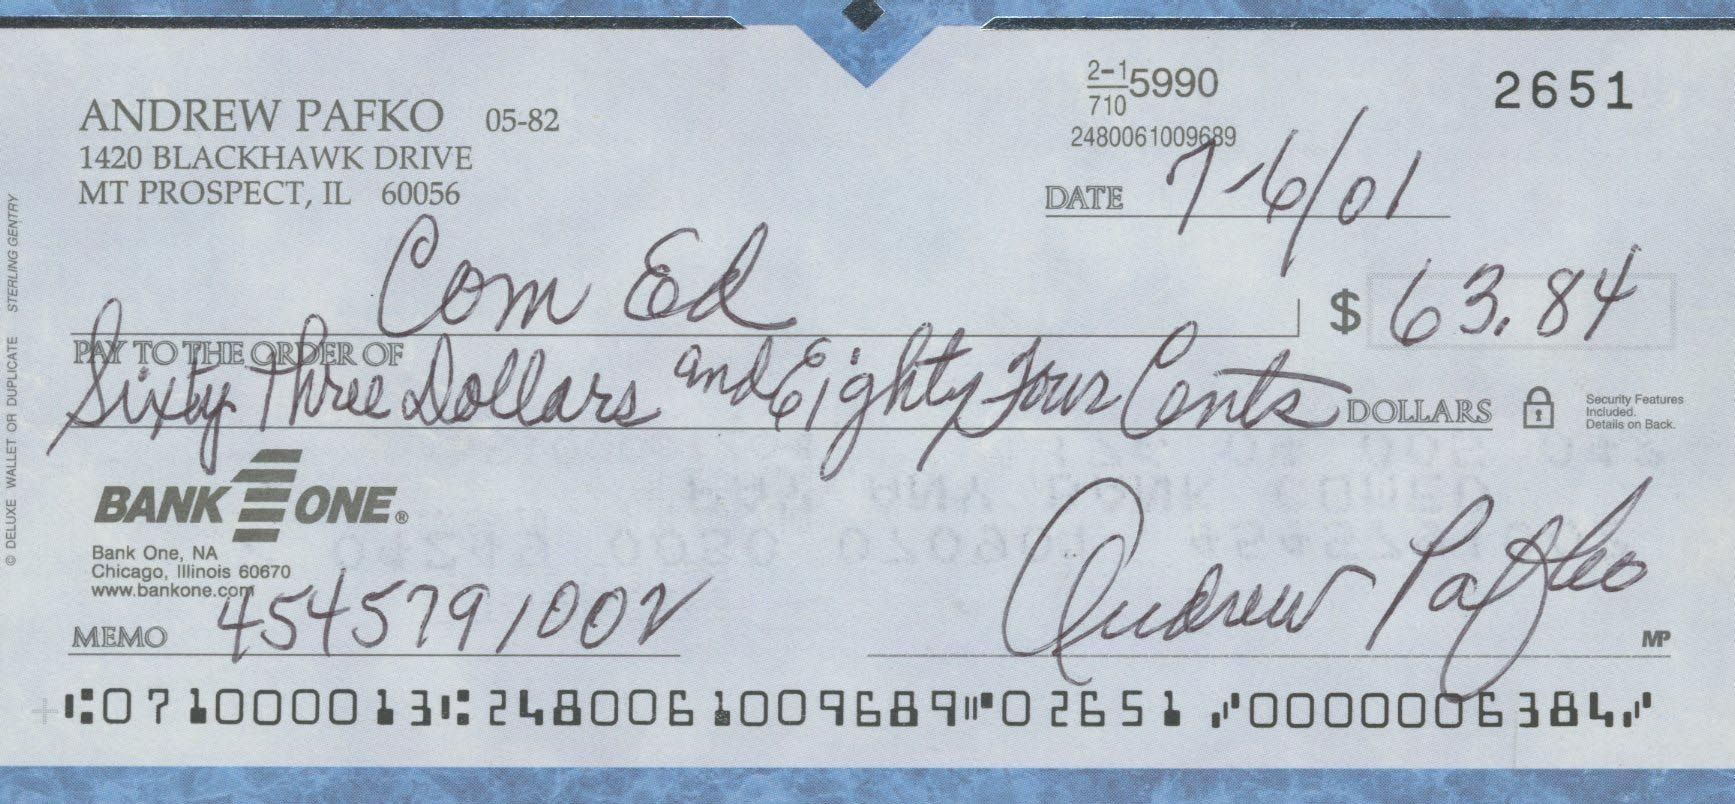 2-1/710 5990
2651
ANDREW PAFKO 05-82
2480061009689
1420 BLACKHAWK DRIVE
MT PROSPECT, IL 60056
DATE 7-6/01
Com Ed
$ 63.84
PAY TO THE ORDER OF
Sixty Three Dollars and Eighty Four Cents DOLLARS
Security Features
Included.
Details on Back.
BANK ONE®
Bank One, NA
Chicago, Illinois 60670
www.bankone.com
MEMO 454579100
Andrew Pafko
MP
⑆071000013⑆ 2480061009689⑈ 02651 ⑈0000006384⑈
© DELUXE WALLET OR DUPLICATE STERLING GENTRY